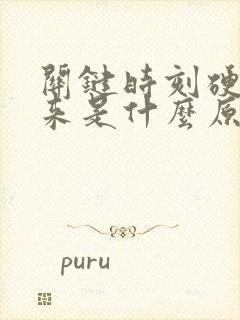 關鍵時刻硬
來是什麼原
puru